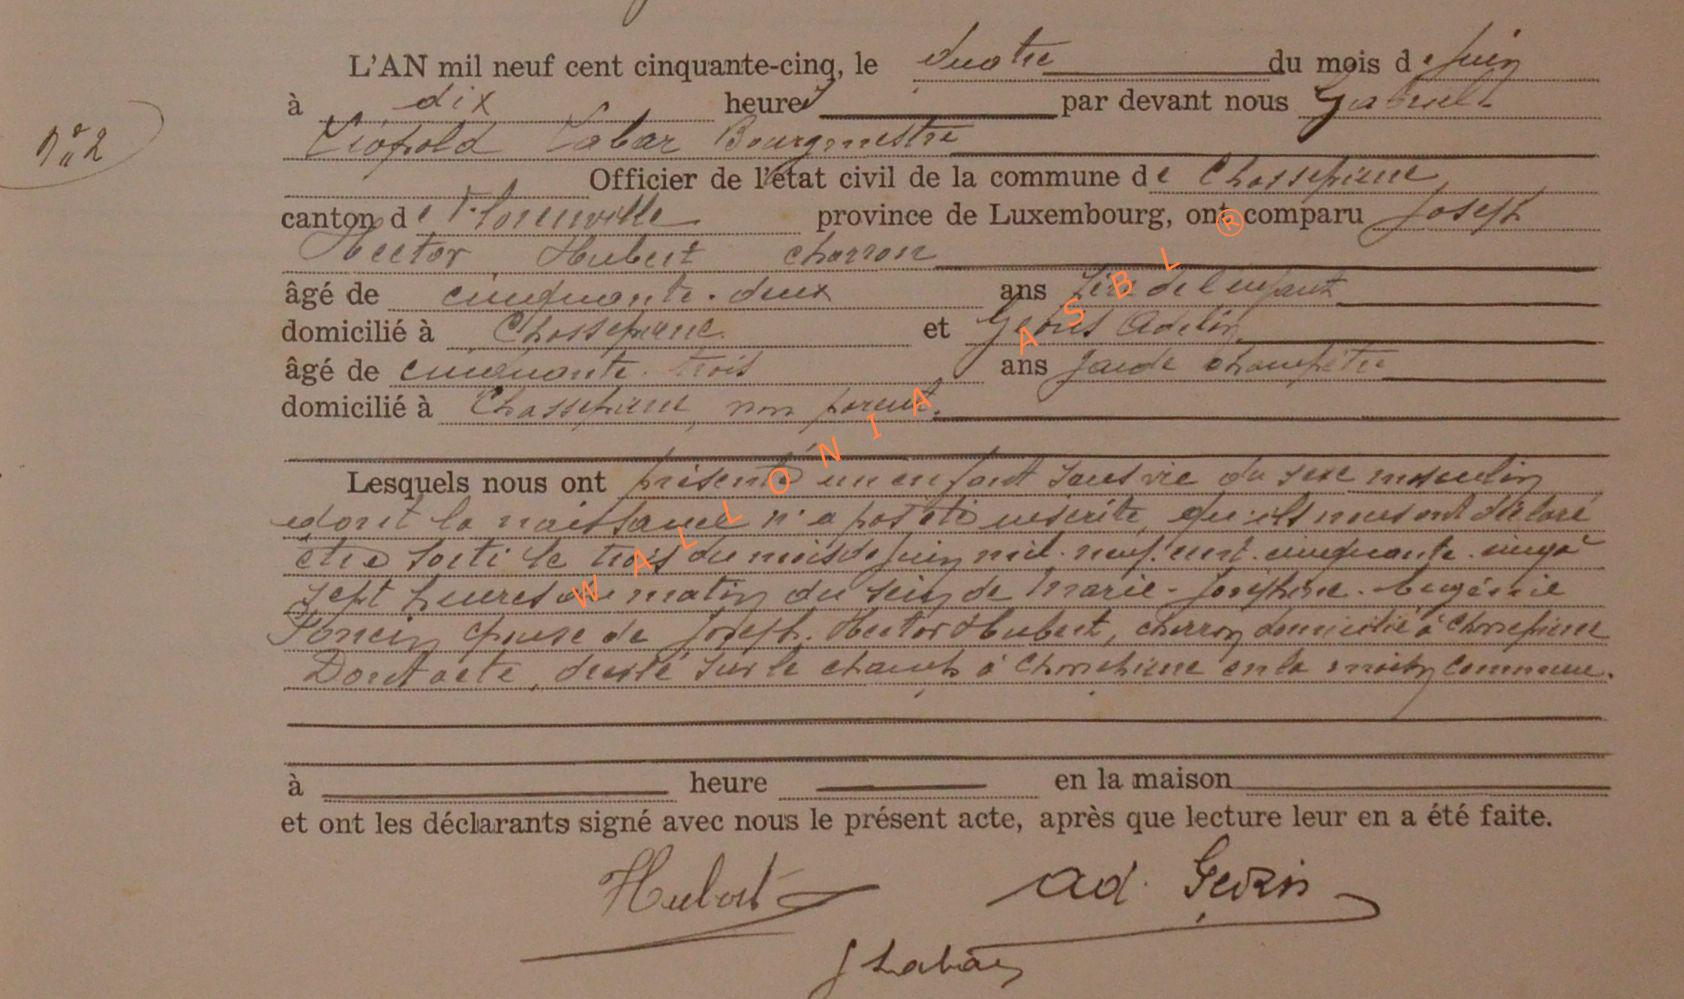 L'AN mil neuf cent cinquante-cinq, le quatre du mois de Juin
N° 2
à dix heures par devant nous Gabriel
Léopold Labar Bourgmestre
Officier de l'état civil de la commune de Chassepierre,
canton de Florenville province de Luxembourg, ont comparu Joseph
Hector Hubert charron
âgé de cinquante-deux ans père de l'enfant
domicilié à Chassepierre et Adelin
âgé de cinquante-trois ans garde champêtre
domicilié à Chassepierre, non parent.
Lesquels nous ont présenté un enfant sans vie du sexe masculin
dont la naissance n'a pas été inscrite, qu'ils nous ont déclaré
être sorti le trois du mois de Juin mil-neuf-cent-cinquante-cinq à
sept heures du matin du sein de Marie-Joséphine-Eugénie
Poncin épouse de Joseph-Hector Hubert, charron domicilié à Chassepierre
Dont acte, dressé sur le champ à Chassepierre en la maison commune.
à heure en la maison
et ont les déclarants signé avec nous le présent acte, après que lecture leur en a été faite.
Hubert Ad.
G Labar
WALLONIA ASBL ®